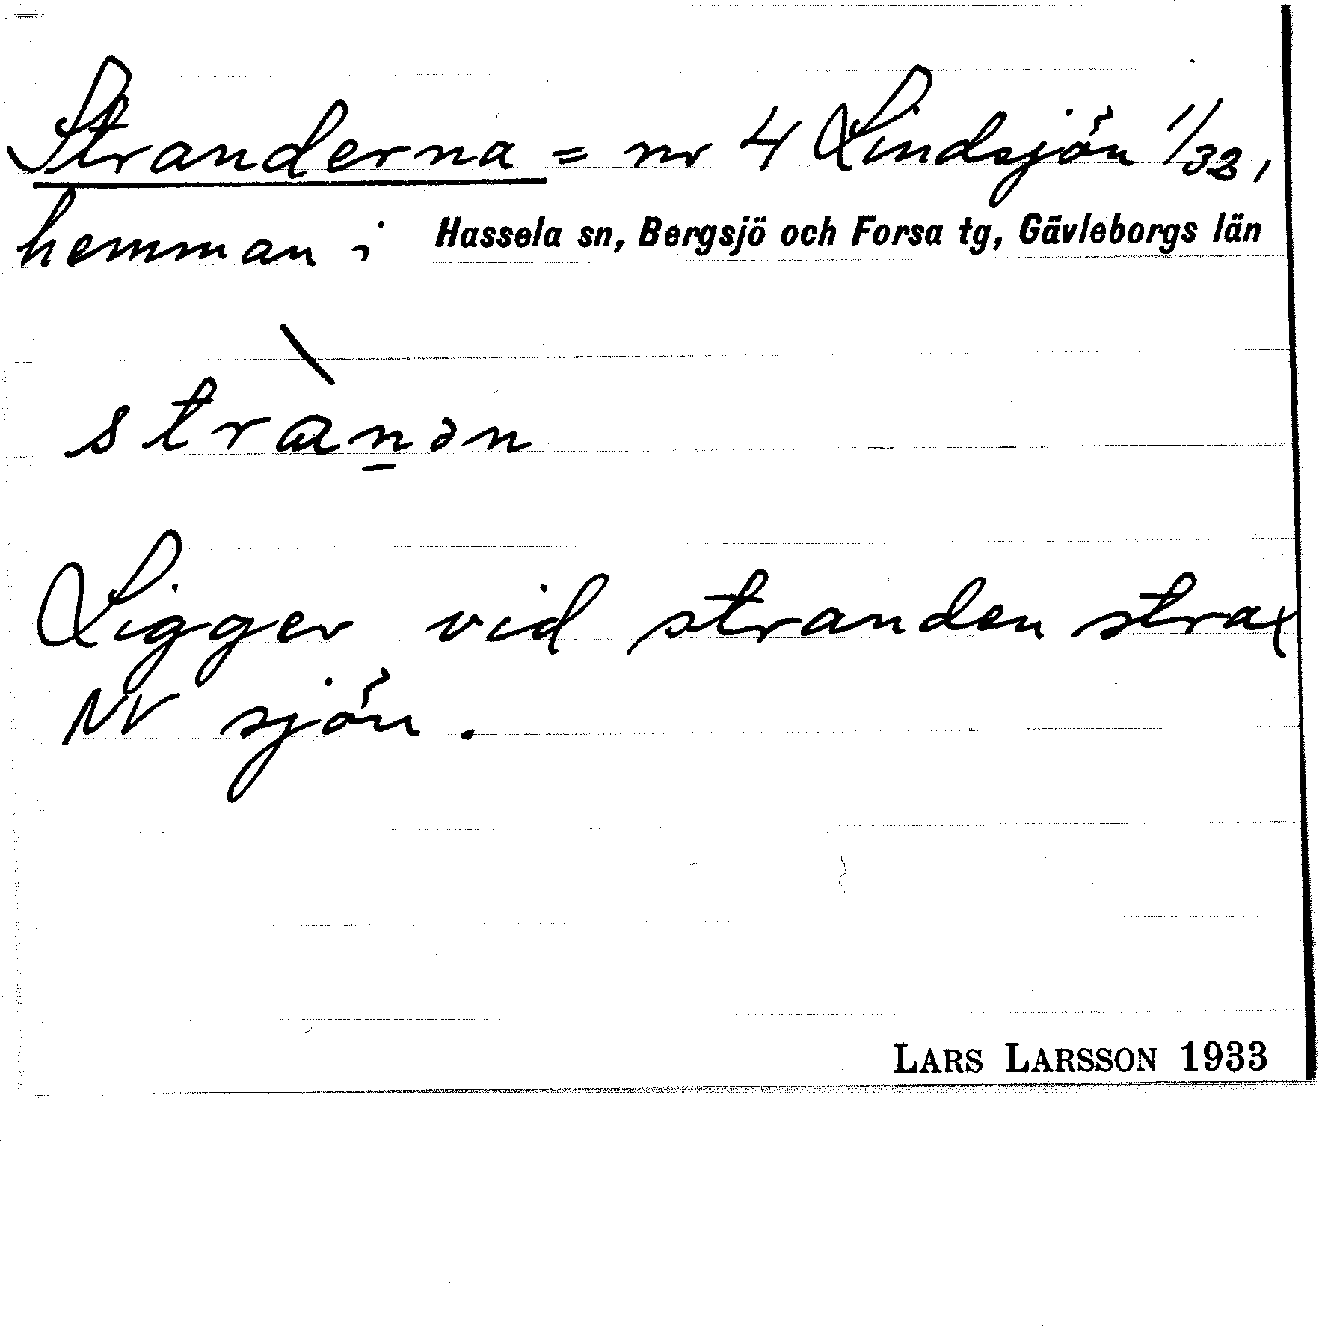 Stranderna = nr 4 Lindsjön 1/32,
hemman i Hassela sn, Bergsjö och Forsa tg, Gävleborgs län
stràn̲ən
Ligger vid stranden strax
NV sjön.
LARS LARSSON 1933